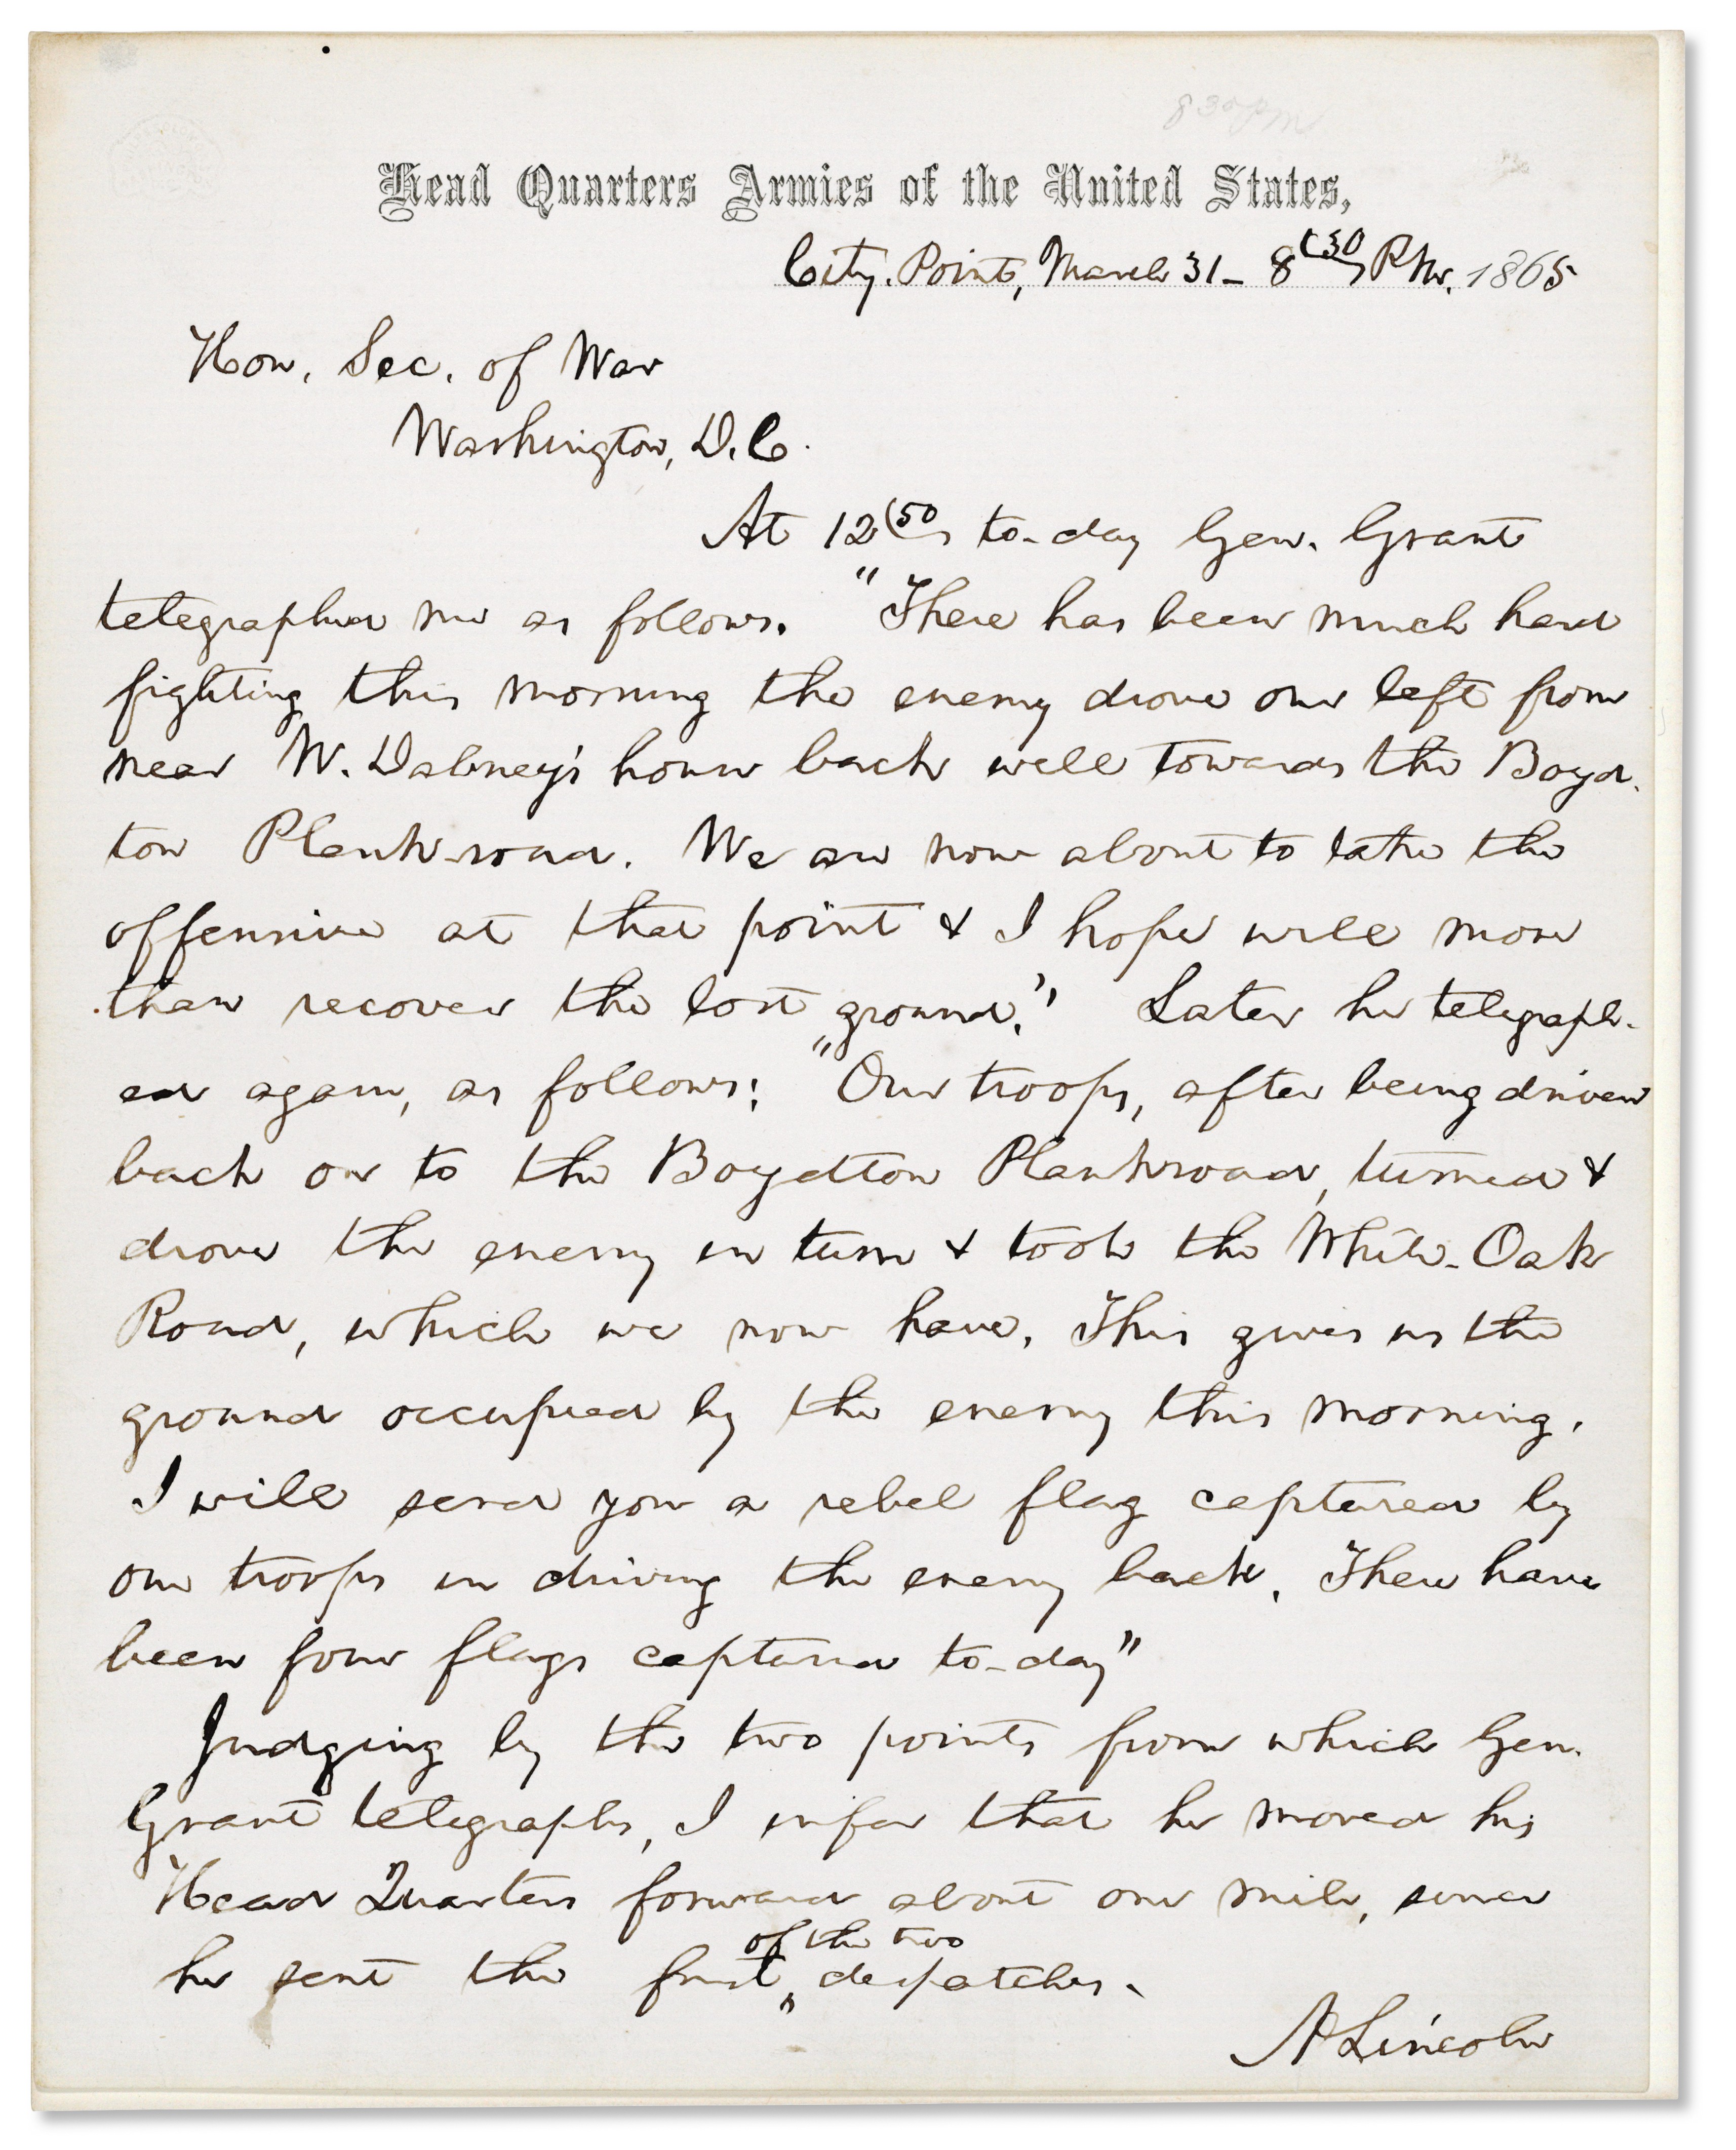 8 30 PM
Head Quarters Armies of the United States,
City-Point, March 31- 8/30 P.M. 1865
Hon. Sec. of War
Washington, D.C.
At 12/50, to-day Gen. Grant
telegraphed me as follows. "There has been much hard
fighting this morning the enemy drove our left from
near W. Dabney's house back well towards the Boyd-
ton Plank-road. We are now about to take the
offensive at that point & I hope will more
than recover the lost ground." Later he telegraph-
ed again, as follows; "Our troops, after being driven
back on to the Boydtton Plankroad, turned &
drove the enemy in turn & took the White-Oak
Road, which we now have. This gives us the
ground occupied by the enemy this morning.
I will send you a rebel flag captured by
our troops in driving the enemy back. There have
been four flags captured to-day"
Judging by the two points from which Gen.
Grant telegraphs, I infer that he moved his
Head Quarters forward about one mile, since
of the two
he sent the first ^ despatches.
A Lincoln